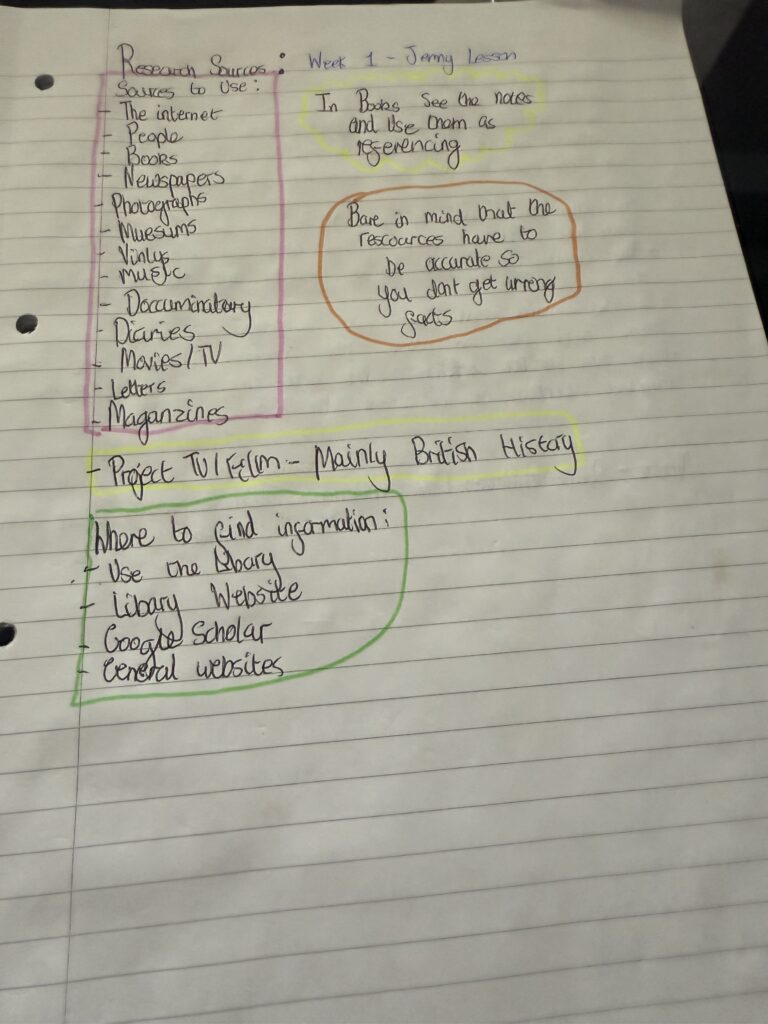 Research Sources: Week 1 - Jenny Lesson
Sources to Use:
- The internet
- People
- Books
- Newspapers
- Photographs
- Muesums
- Vinlys
- Music
- Doccuminatary
- Diaries
- Movies/TV
- Letters
- Maganzines
In Books See the notes
and Use them as
referencing
Bare in mind that the
rescources have to
be accurate so
you dont get wrong
facts
- Project TV/Film - Mainly British History
Where to find information:
- Use the libary
- Libary Website
- Google Scholar
- General websites